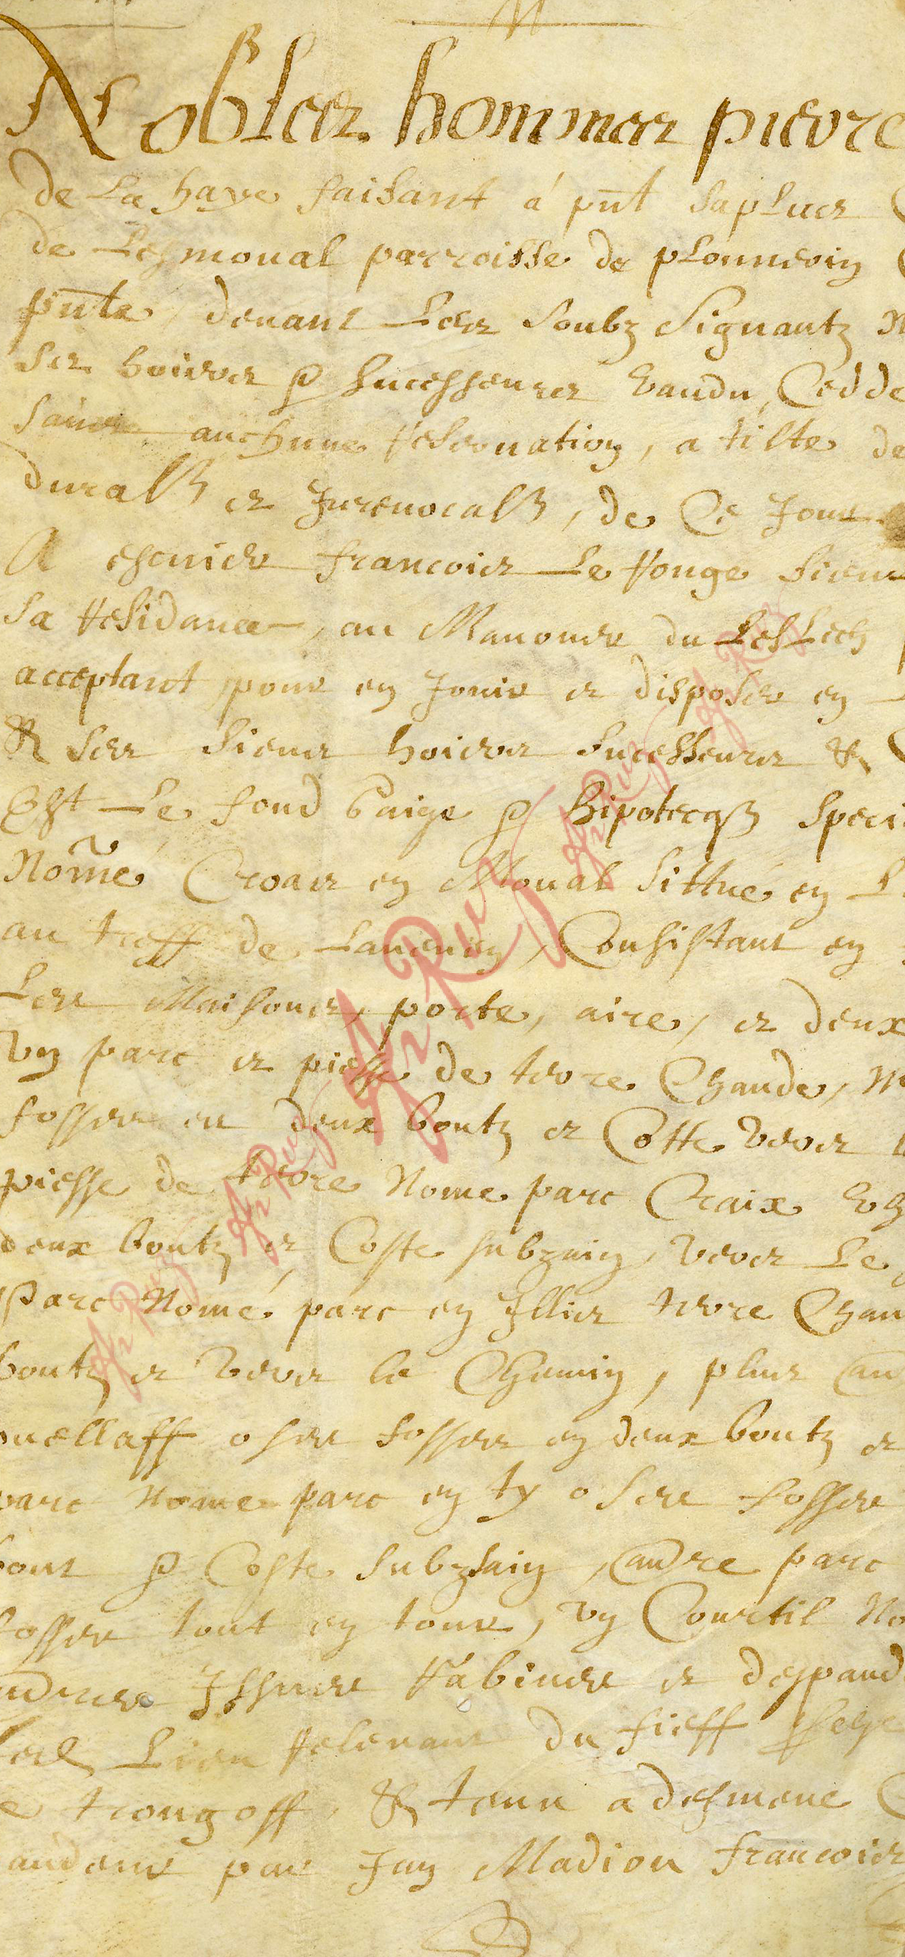 Nobles hommes pierre
de La haye faisant a pnt sapluer
de Lesmoual parroisse de plounevin
pnte devant Les soubz signantz
ses hoires & sucesseures vandu, Cedde
sains auchune reservation, a tilte de
durasß et Jurevocalß, de Ce Jour
A escuier francois Le rouge sieur
sa residance, au Manouer du LesLech
acceptant pour en Jouir et disposer en
& ses sieurs hoires sucesseures &
Est Le fond gaige & hipotecqß speci
Nomé Croas en Moual Sittué en L
au treff de Lanenen, Consistant en
Les Maisons, porte, aire, et deux
un parc et piesse de terre Chaude, N
fosses en deux boutz et Cotte vers
piesse de terre Nome parc Craix
deux boutz et Coste subzain, vers Le
Parc Nomé parc en Illis terre Chau
boutz et vers le Chemin, plus au
ouellaff o ses fosses en deux boutz et
parc Nome parc en ty o ses fosses
bout & Coste subzsain, autre parc
fosses tout en tour, un Courtil No
Issues rabines et despand
Lieu relevant du fieff
e trongoff, & tenu a desmene
par Jan Madiou francois
Ar Ruz
Ar Ruz
Ar Ruz
Ar Ruz
Ar Ruz